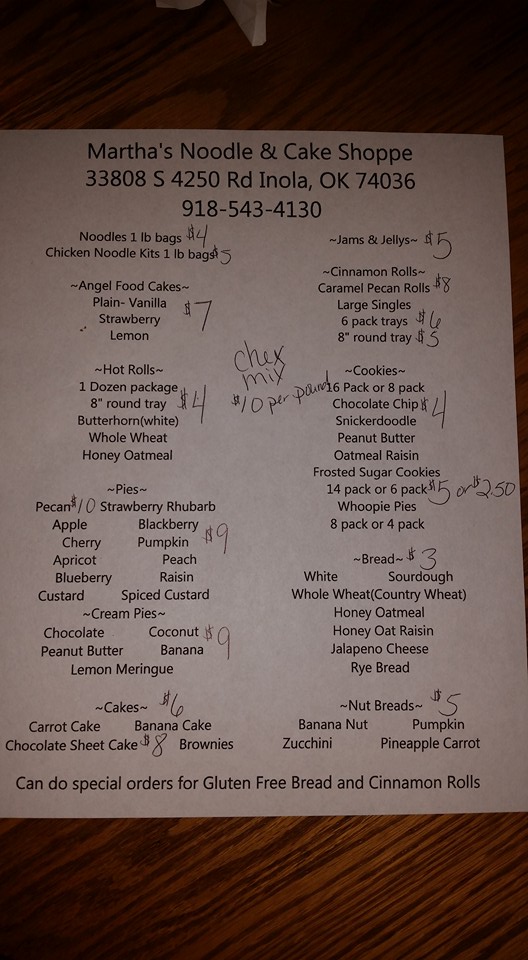 Martha's Noodle & Cake Shoppe
33808 S 4250 Rd Inola, OK 74036
918-543-4130
Noodles 1 lb bags $4
Chicken Noodle Kits 1 lb bags $5
~Angel Food Cakes~
Plain- Vanilla
Strawberry $7
Lemon
~Hot Rolls~
1 Dozen package
8" round tray $4
Butterhorn(white)
Whole Wheat
Honey Oatmeal
~Pies~
Pecan $10 Strawberry Rhubarb
Apple Blackberry
Cherry Pumpkin $9
Apricot Peach
Blueberry Raisin
Custard Spiced Custard
~Cream Pies~
Chocolate Coconut $9
Peanut Butter Banana
Lemon Meringue
~Cakes~ $6
Carrot Cake Banana Cake
Chocolate Sheet Cake $8 Brownies
chex
mix
$10 per pound
~Jams & Jellys~ $5
~Cinnamon Rolls~
Caramel Pecan Rolls $8
Large Singles
6 pack trays $6
8" round tray $5
~Cookies~
16 Pack or 8 pack
Chocolate Chip $4
Snickerdoodle
Peanut Butter
Oatmeal Raisin
Frosted Sugar Cookies
14 pack or 6 pack $5 or $2.50
Whoopie Pies
8 pack or 4 pack
~Bread~ $3
White Sourdough
Whole Wheat(Country Wheat)
Honey Oatmeal
Honey Oat Raisin
Jalapeno Cheese
Rye Bread
~Nut Breads~ $5
Banana Nut Pumpkin
Zucchini Pineapple Carrot
Can do special orders for Gluten Free Bread and Cinnamon Rolls